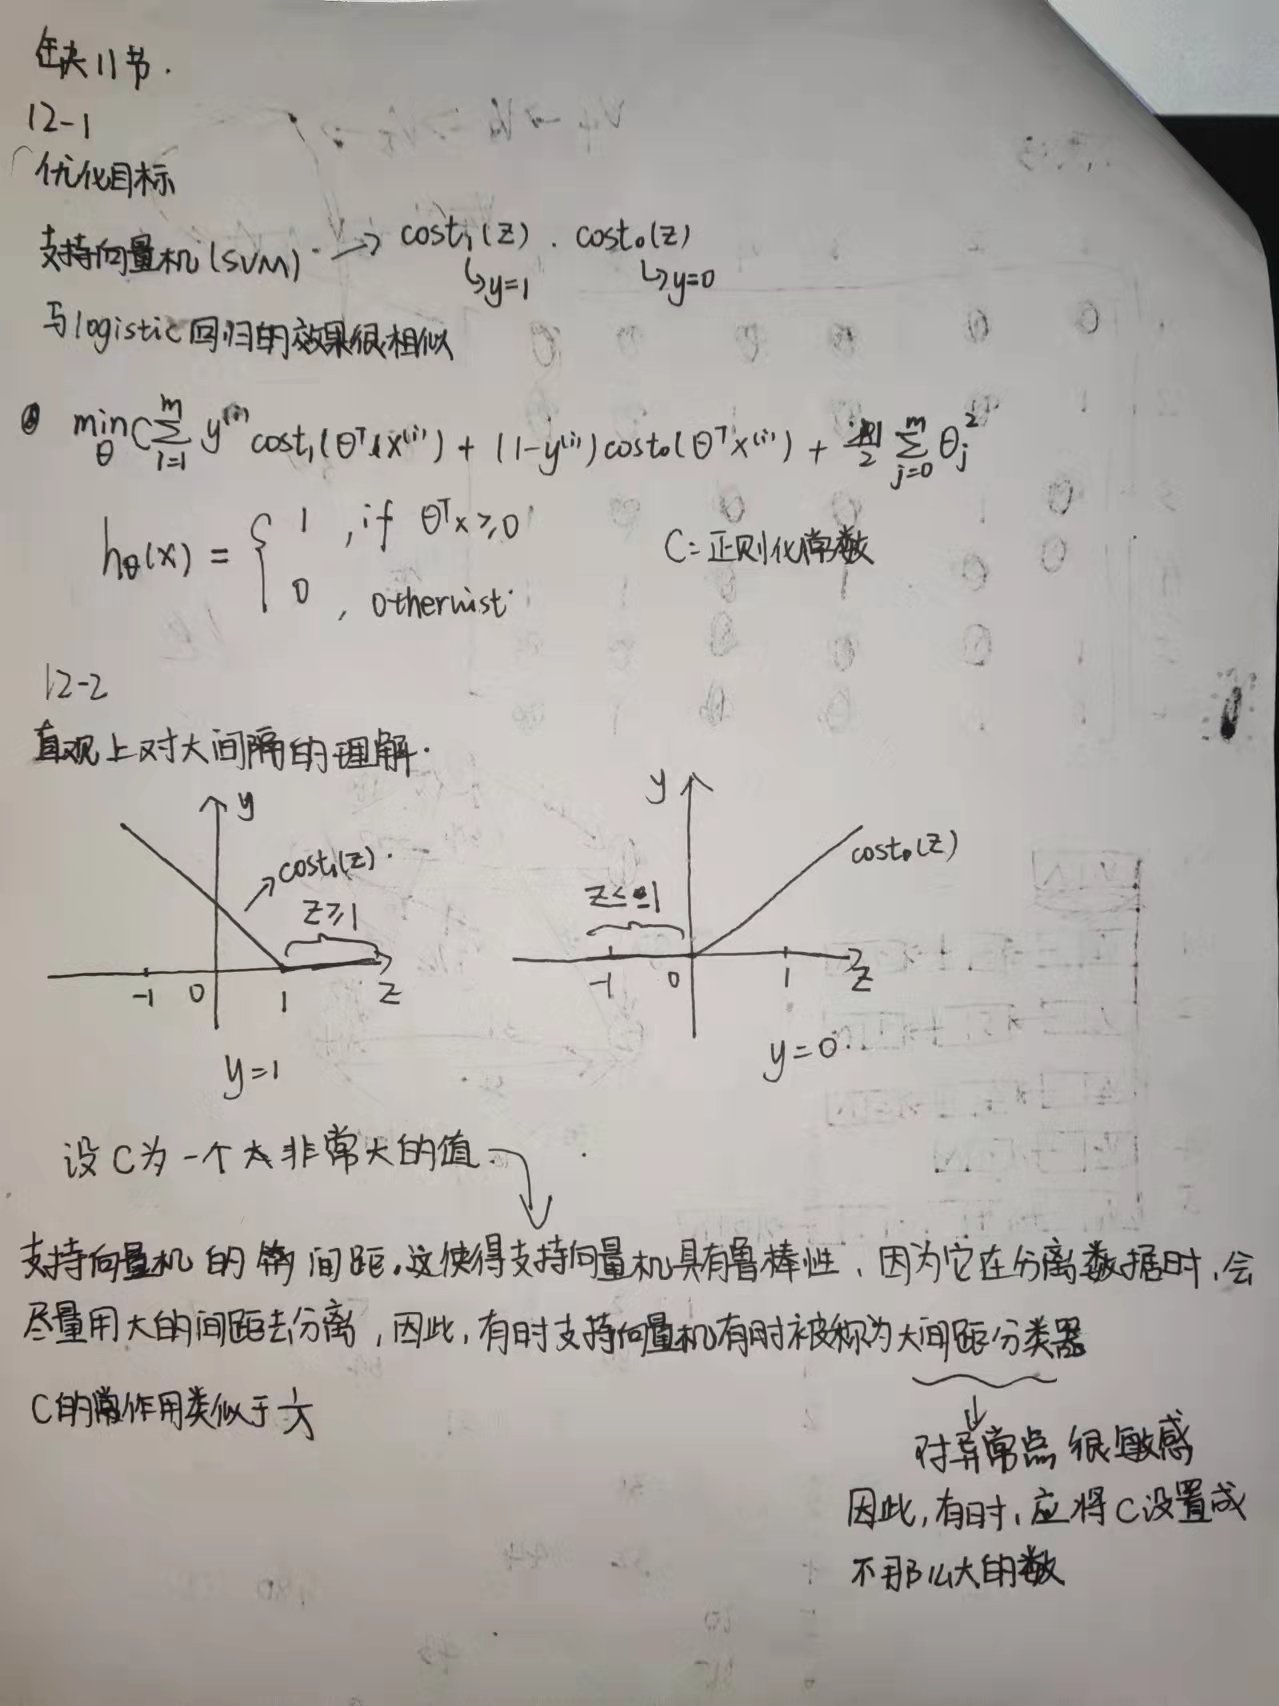 缺11节.
12-1
优化目标
支持向量机(SVM) → cost₁(z) . cost₀(z)
↳y=1 ↳y=0
与logistic回归的效果很相似
min_θ C Σ_{i=1}^{m} y^{(i)} cost₁(θᵀx^{(i)}) + (1-y^{(i)}) cost₀(θᵀx^{(i)}) + 1/2 Σ_{j=0}^{m} θ_j²
h_θ(x) = { 1 , if θᵀx ≥ 0
C=正则化常数
0 , otherwist
12-2
直观上对大间隔的理解.
y
cost₁(z).
z≥1
-1 0 1 z
y=1
y
cost₀(z)
z≤-1
-1 0 1 z
y=0.
设C为一个非常大的值.
支持向量机的 间距.这使得支持向量机具有鲁棒性，因为它在分离数据时,会
尽量用大的间距去分离，因此，有时支持向量机有时被称为大间距分类器
C的作用类似于1/λ
↓
对异常点很敏感
因此,有时,应将C设置成
不那么大的数